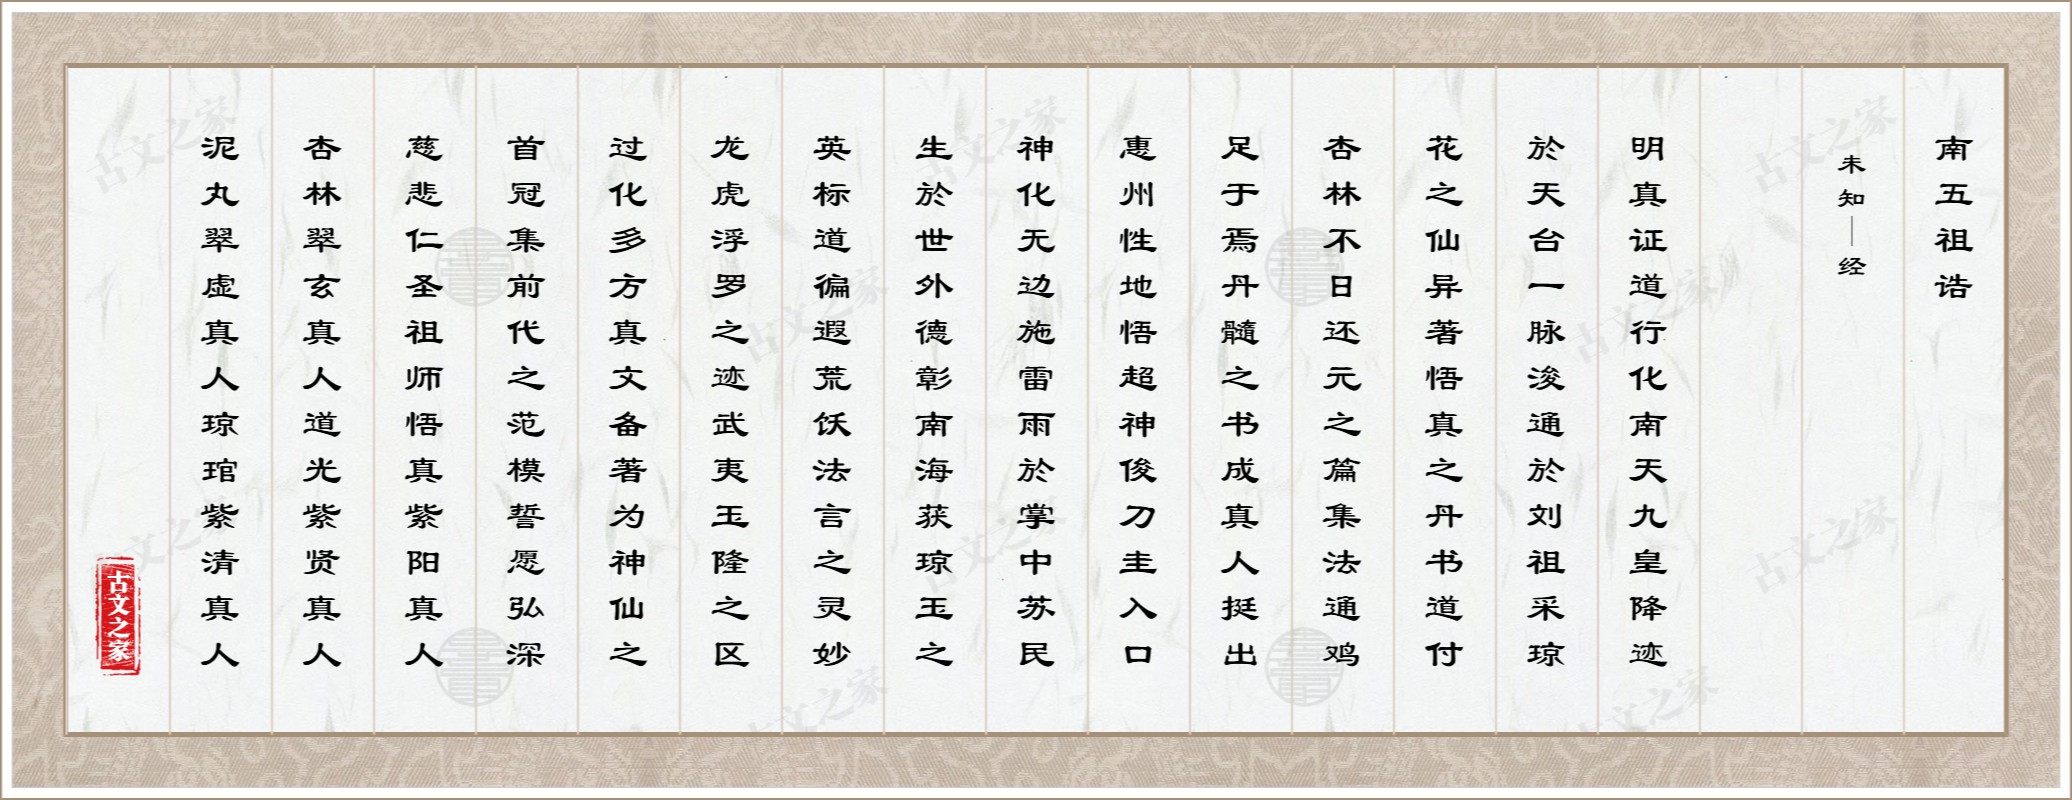 南五祖诰
未知｜经
明真证道行化南天九皇降迹
於天台一脉浚通於刘祖采琼
花之仙异著悟真之丹书道付
杏林不日还元之篇集法通鸡
足于焉丹髓之书成真人挺出
惠州性地悟超神俊刀圭入口
神化无边施雷雨於掌中苏民
生於世外德彰南海获琼玉之
英标道徧遐荒饫法言之灵妙
龙虎浮罗之迹武夷玉隆之区
过化多方真文备著为神仙之
首冠集前代之范模誓愿弘深
慈悲仁圣祖师悟真紫阳真人
杏林翠玄真人道光紫贤真人
泥丸翠虚真人琼琯紫清真人
古文之家